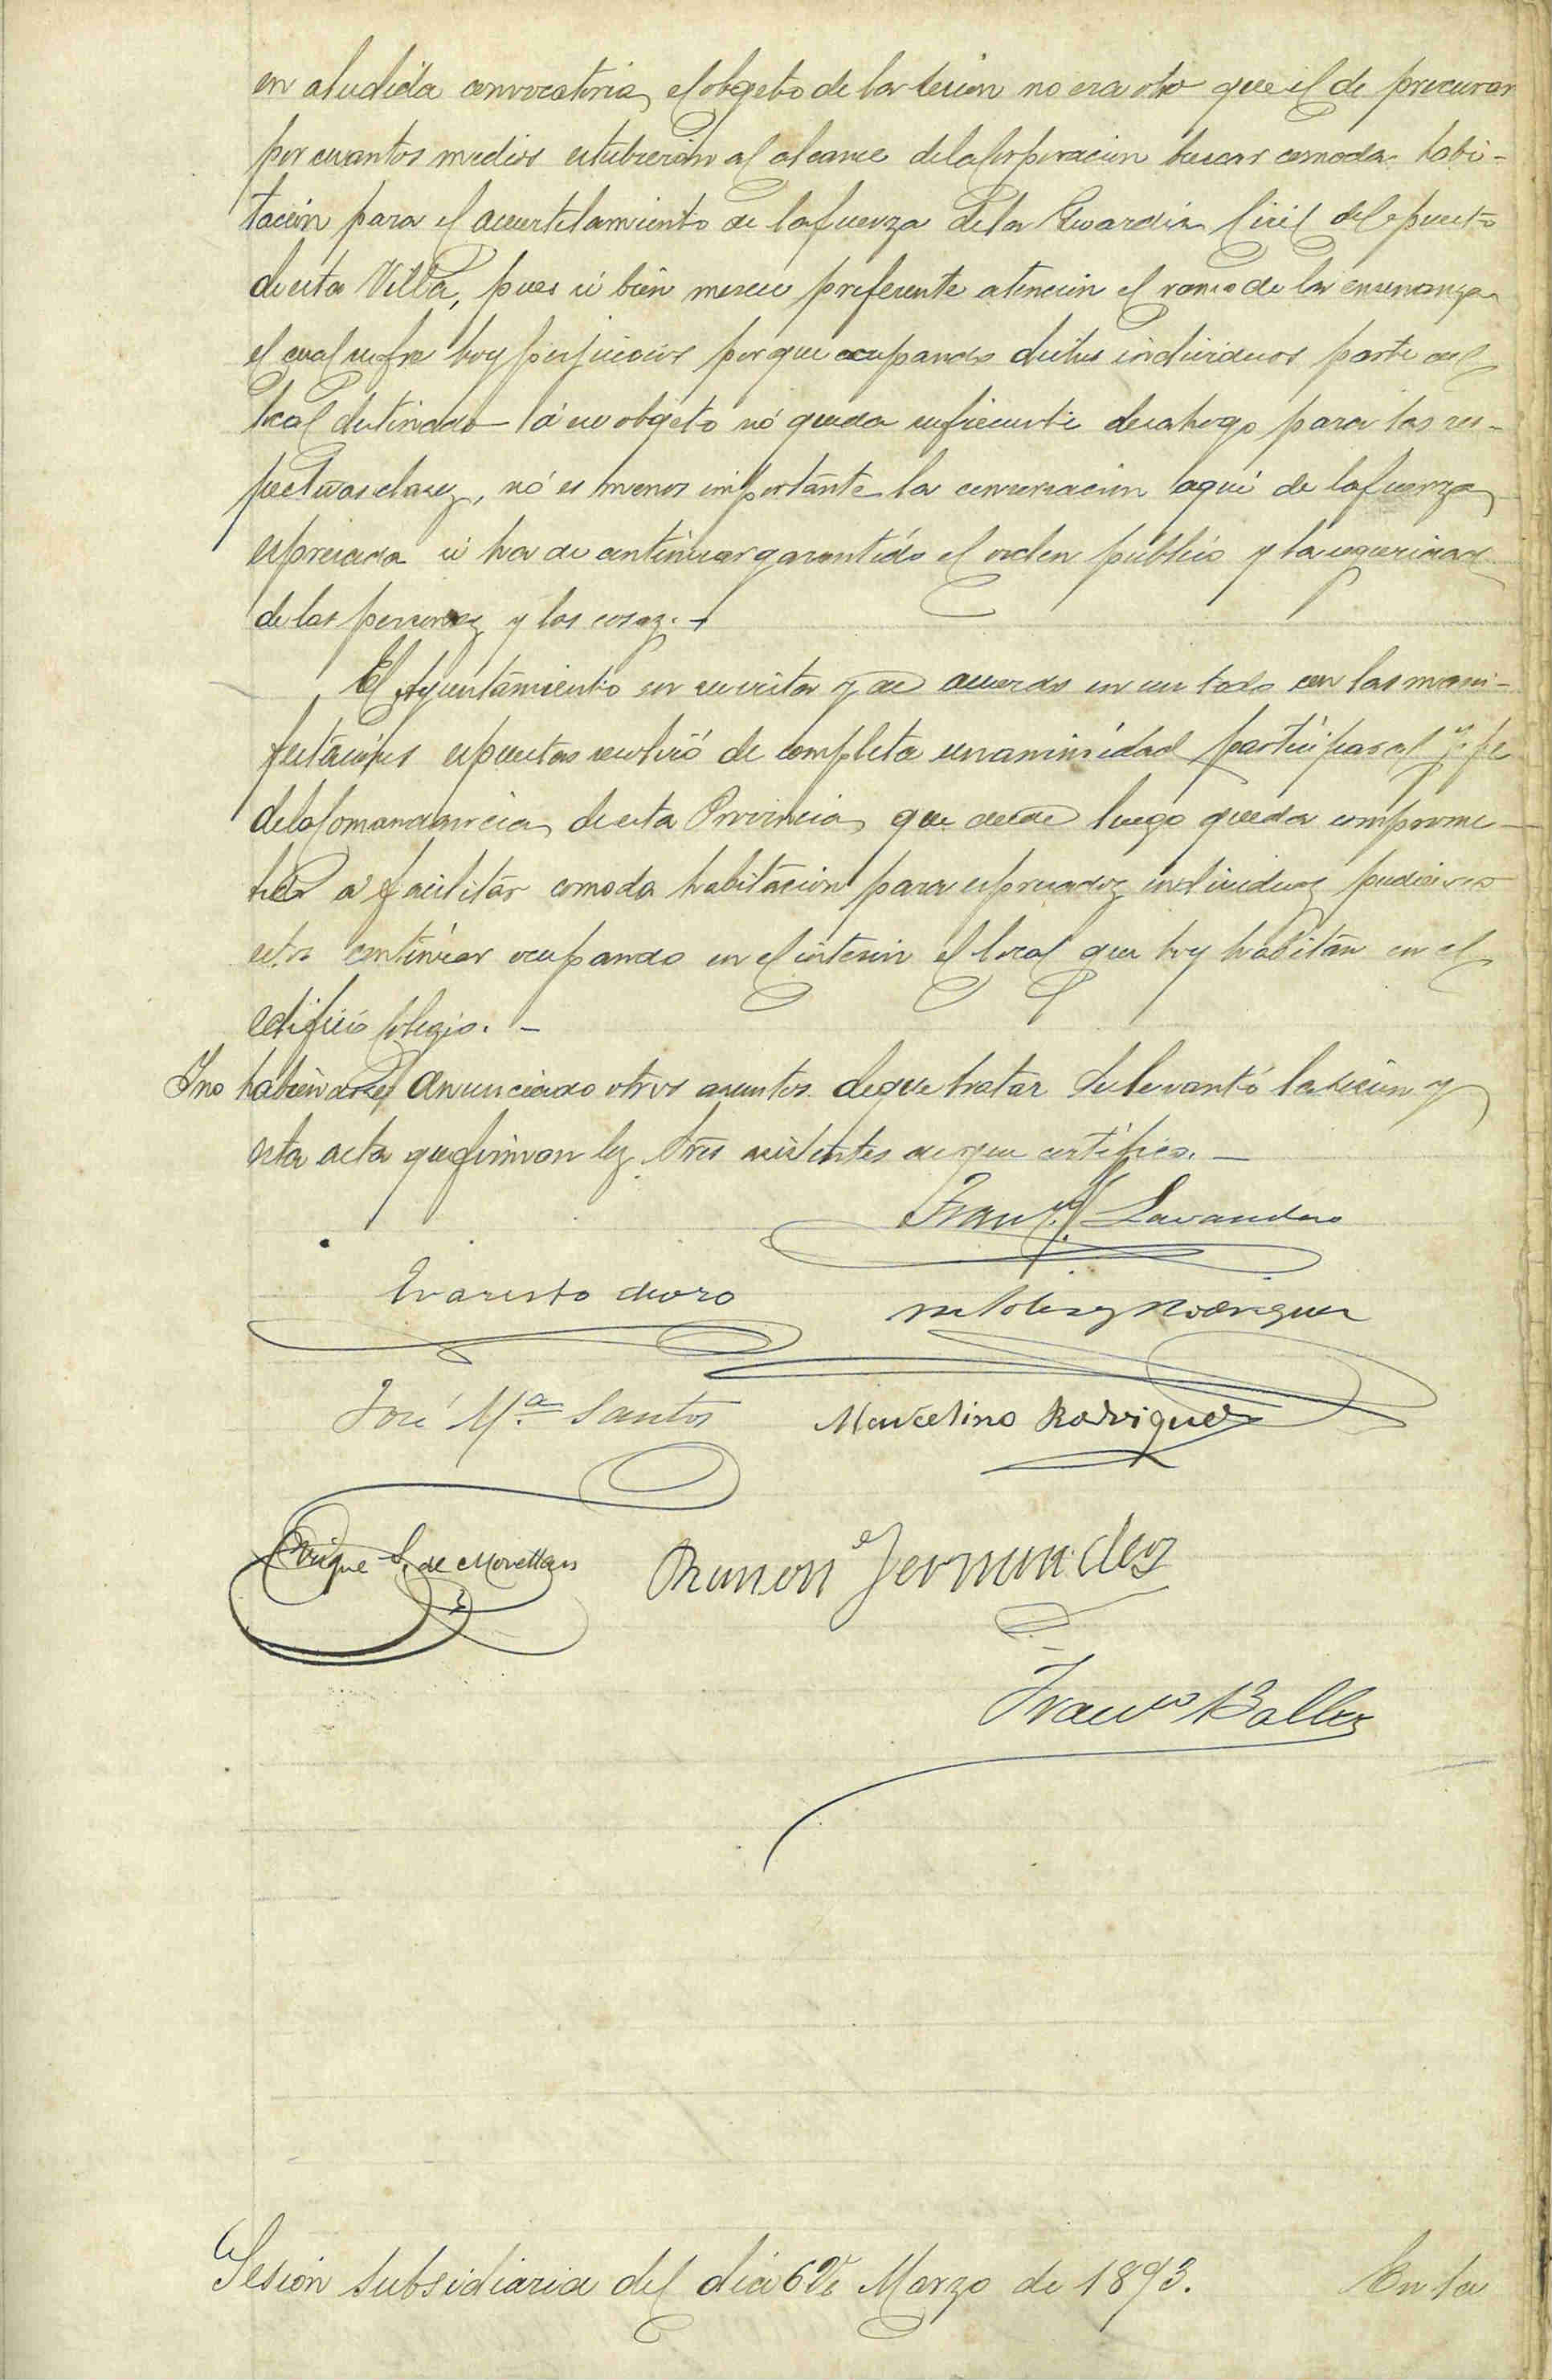 en aludida convocatoria, el obgeto de la sesion no era otro que el de procurar
por cuantos medios estubieran al alcance de la Corporacion buscar comoda habi-
tación para el acuertelamiento de la fuerza de la Guardia Civil del puesto
de esta Villa, pues si bien merece preferente atencion el ramo de la enseñanza
el cual sufre hoy perjuicios por que ocupando dichos individuos parte del
local destinado á su obgeto nó queda suficiente desahogo para las res-
pectivas clases, nó es menos importante la conservacion aquí de la fuerza
espresada si ha de continuar garantido el orden público y la seguridad
de las personas y las cosas.
El Ayuntamiento en su vista y de acuerdo en un todo con las mani-
festaciones espuestas resolvió de completa unanimidad participar al Jefe
de la Comandancia de esta Provincia, que desde luego queda comprome-
tido á facilitar comoda habitación para espresados individuos pudiendo
estos continuar ocupando en el interin el local que hoy habitan en el
edificio Colegio.
Y no habiendose anunciado otros asuntos de que tratar se levantó la sesion y
esta acta que firman los Sres asistentes de que certifico.
Franco Lavandero
Evaristo
Rodriguez
José Ma. Santos Marcelino Rodriguez
Enrique S. de Ramon Fernandez
Franco
Sesión subsidiaria del día 6 de Marzo de 1893. En la